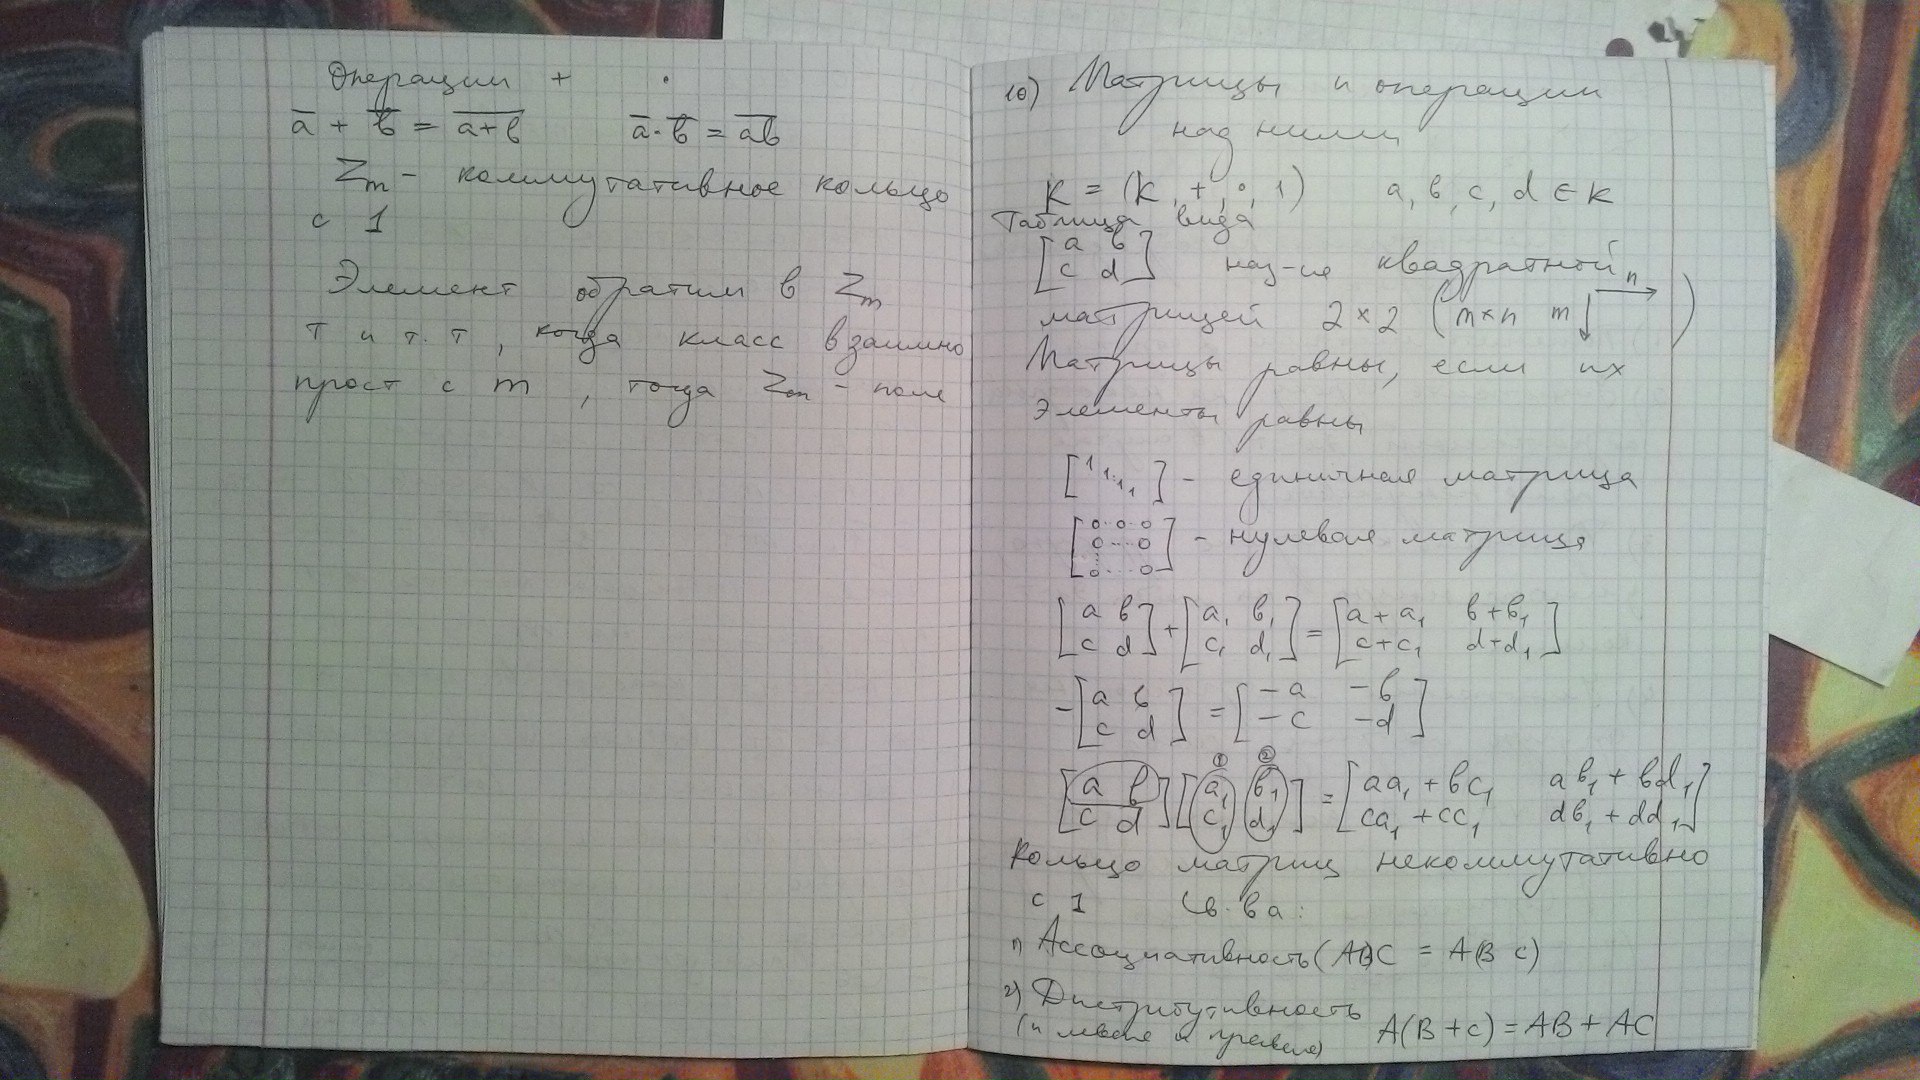 Операции + ·
a̅ + b̅ = \overline{a+b} a̅·b̅ = \overline{ab}
Zm - коммутативное кольцо
с 1
Элемент обратим в Zm
т и т. т, когда класс взаимно
прост с m, тогда Zm - поле
10) Матрицы и операции
над ними
K = (K, +, ·, 1) a, b, c, d ∈ K
Таблица вида
[a b
c d] наз-ся квадратной
матрицей 2×2 (m×n m↓ n→)
Матрицы равны, если их
элементы равны
[1 1 ⋱ 1] - единичная матрица
[0 · 0 · 0
0 ... 0
0 ... 0] - нулевая матрица
[a b
c d] + [a₁ b₁
c₁ d₁] = [a+a₁ b+b₁
c+c₁ d+d₁]
-[a b
c d] = [-a -b
-c -d]
① ②
[a b
c d][a₁ b₁
c₁ d₁] = [aa₁+bc₁ ab₁+bd₁
ca₁+cc₁ db₁+dd₁]
Кольцо матриц некоммутативно
с 1 Св-ва:
1) Ассоциативность (AB)C = A(B C)
2) Дистрибутивность
(и левая и правая) A(B+C) = AB + AC